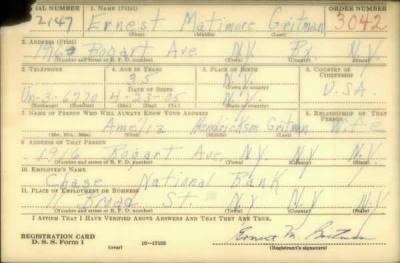 SERIAL NUMBER 1. NAME (Print) ORDER NUMBER
2147 Ernest Matimore Gritman 3042
(First) (Middle) (Last)
2. ADDRESS (Print)
1916 Hobart Ave N.Y. Bx N.Y.
(Number and street or R. F. D. number) (Town) (County) (State)
3. TELEPHONE 4. AGE IN YEARS 5. PLACE OF BIRTH 6. COUNTRY OF CITIZENSHIP
35 N.Y.
DATE OF BIRTH (Town or county) U.S.A.
Un-3-6770 4-23-05 N.Y.
(Exchange) (Number) (Mo.) (Day) (Yr.) (State or country)
7. NAME OF PERSON WHO WILL ALWAYS KNOW YOUR ADDRESS 8. RELATIONSHIP OF THAT PERSON
Amelia Hendrickson Gritman Wife
(Mr., Mrs., Miss) (First) (Middle) (Last)
9. ADDRESS OF THAT PERSON
1916 Hobart Ave, N.Y. N.Y. N.Y.
(Number and street or R. F. D. number) (Town) (County) (State)
10. EMPLOYER'S NAME
Chase National Bank
11. PLACE OF EMPLOYMENT OR BUSINESS
11 Broad St. N.Y. N.Y. N.Y.
(Number and street or R. F. D. number) (Town) (County) (State)
I AFFIRM THAT I HAVE VERIFIED ABOVE ANSWERS AND THAT THEY ARE TRUE.
REGISTRATION CARD Ernest M. Gritman
D. S. S. Form 1 (over) 16-17105 (Registrant's signature)